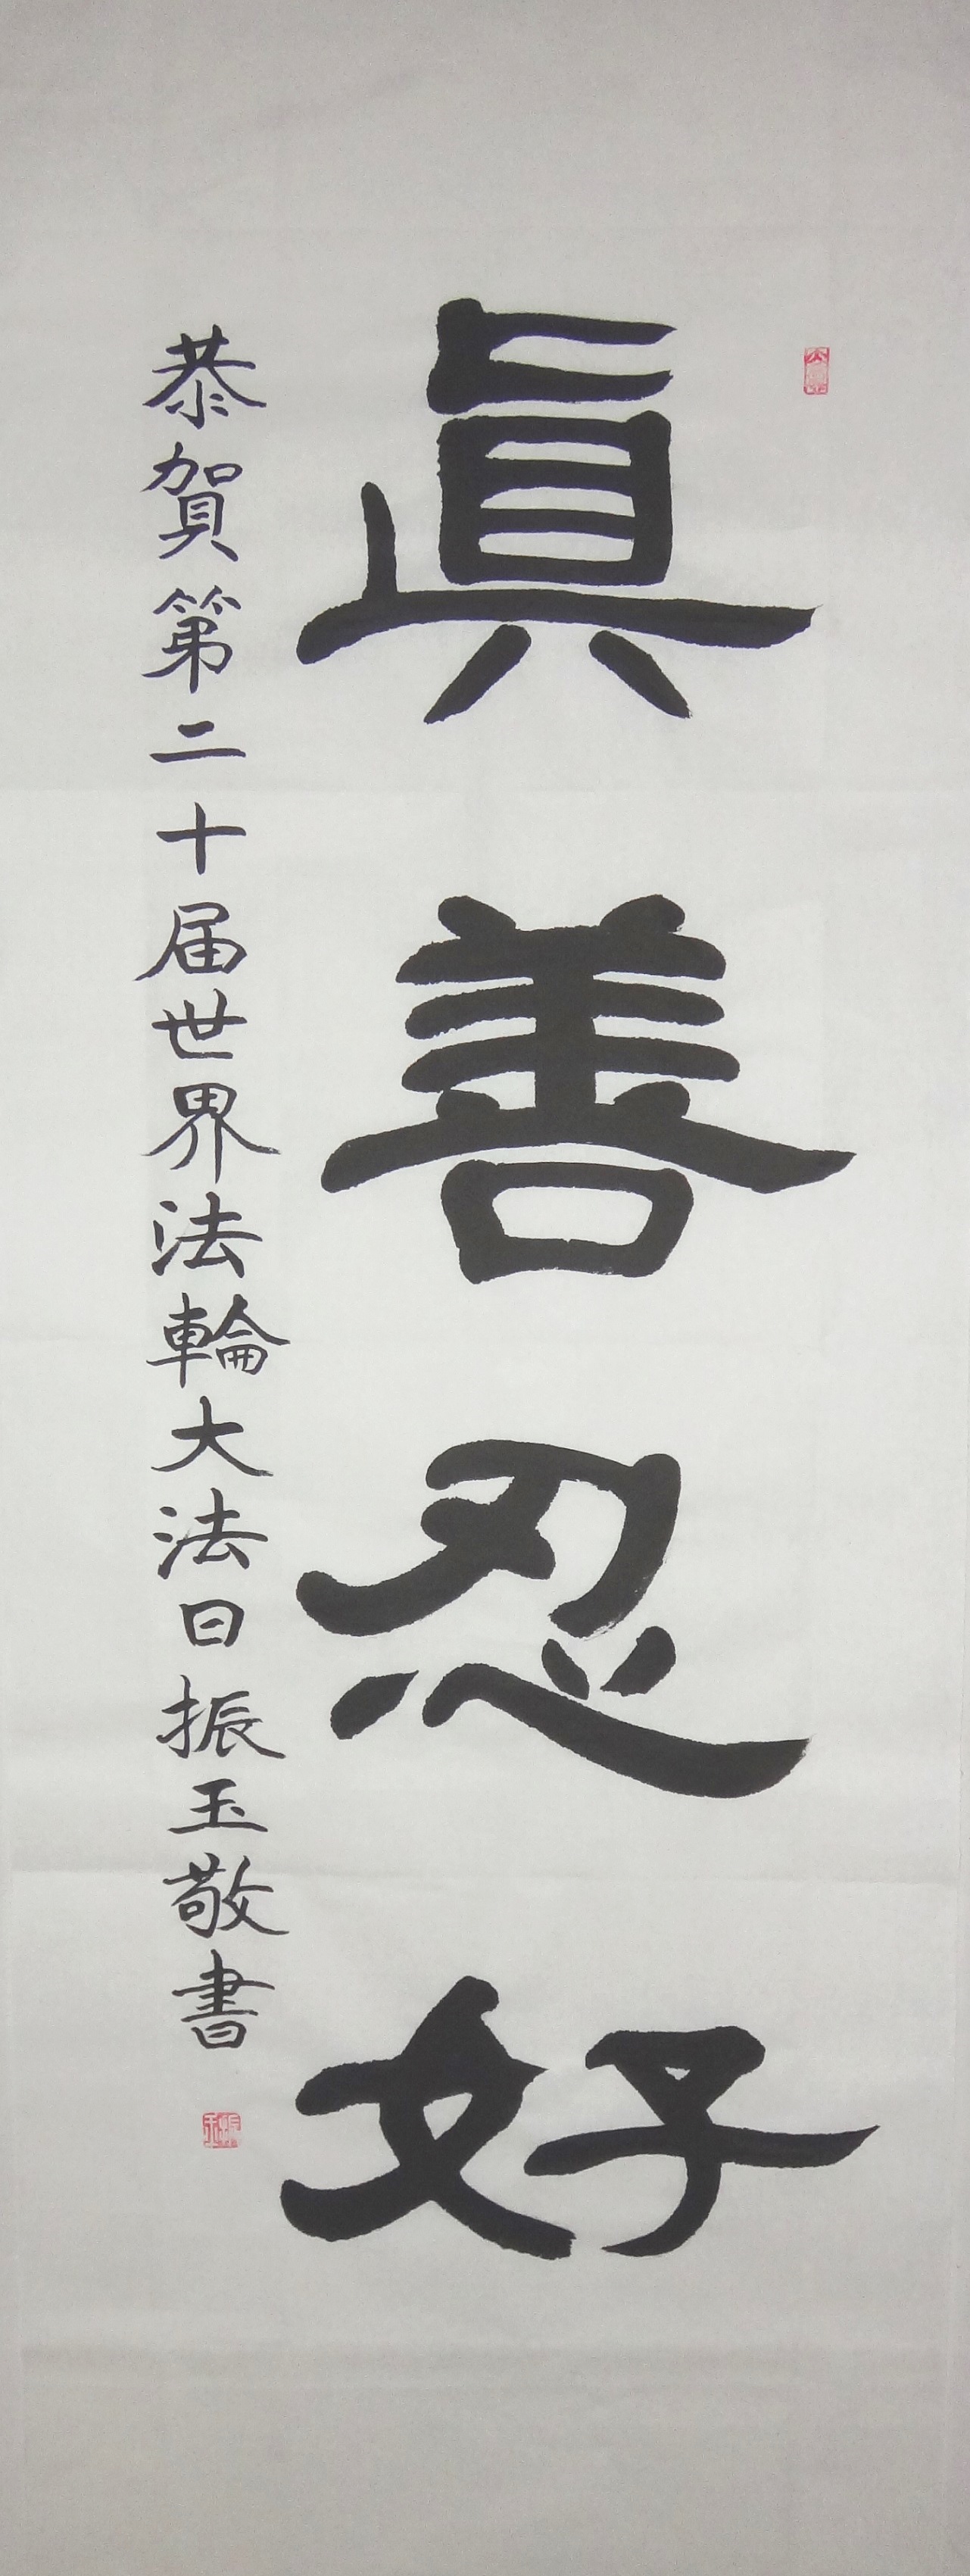 眞善忍好
恭賀第二十届世界法輪大法日振玉敬書